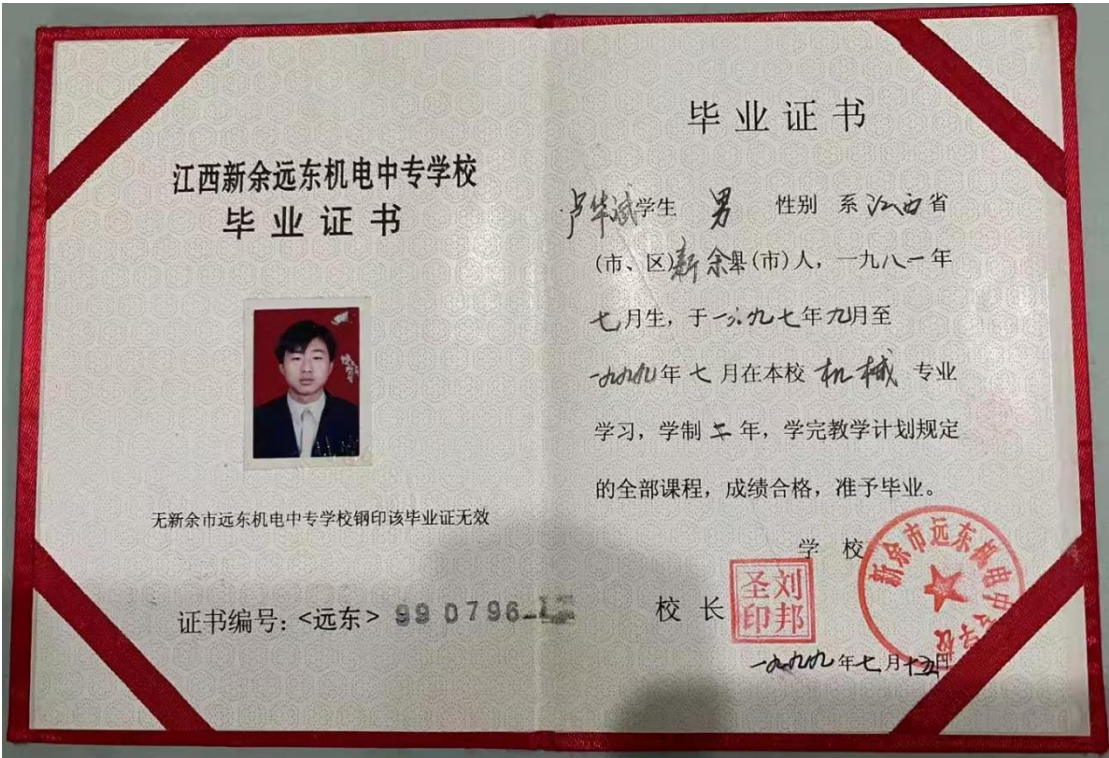 江西新余远东机电中专学校
毕业证书
无新余市远东机电中专学校钢印该毕业证无效
证书编号：<远东> 990796-
毕业证书
卢华斌学生 男 性别 系江西省
(市、区)新余县(市)人，一九八一年
七月生，于一九九七年九月至
一九九九年七月在本校机械专业
学习，学制二年，学完教学计划规定
的全部课程，成绩合格，准予毕业。
学校
新余市远东机电中专学校
校长
刘邦圣印
一九九九年七月十五日